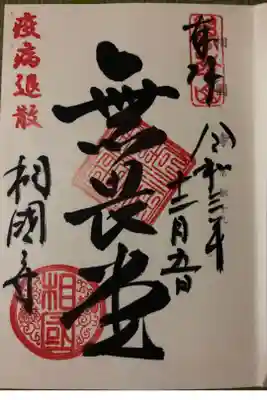 奉拝
令和三年
十二月五日
無畏堂
相國寺
疫病退散
相國